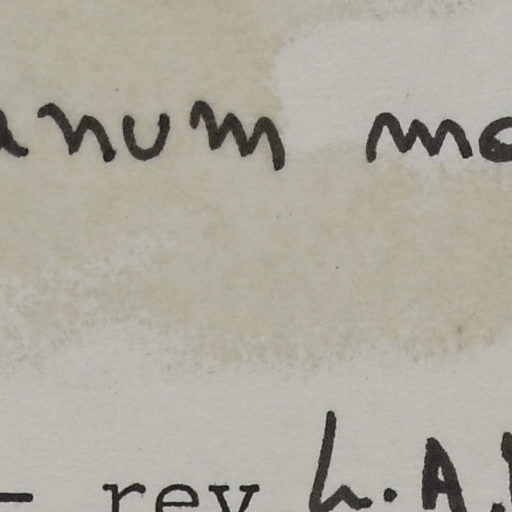 anum mo
- rev h.A.